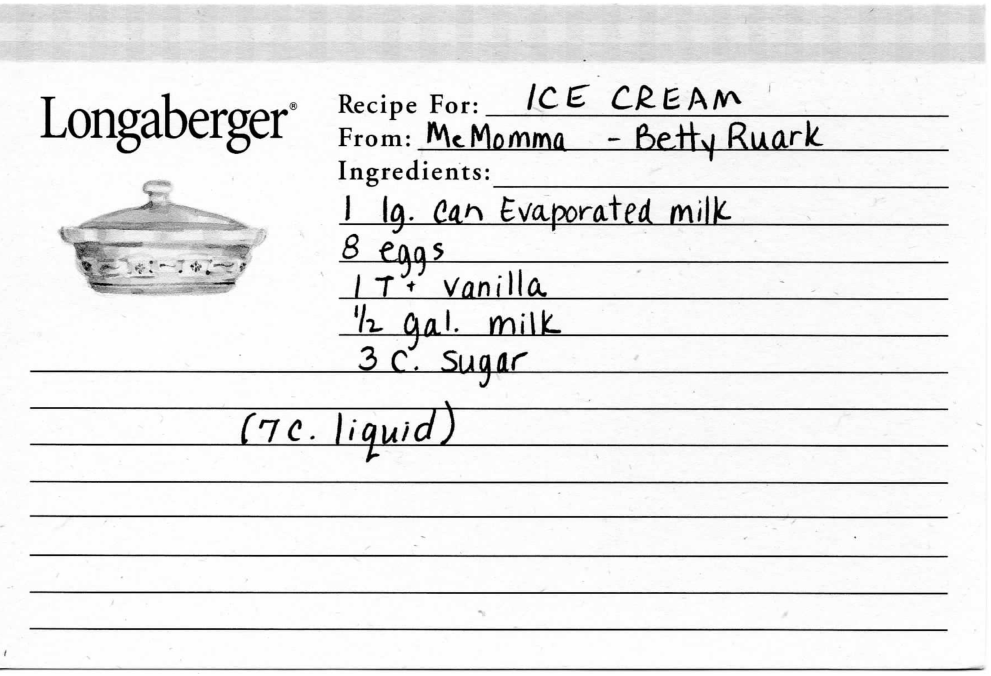 Longaberger®
Recipe For: ICE CREAM
From: McMomma - Betty Ruark
Ingredients:
1 lg. can Evaporated milk
8 eggs
1 T + vanilla
1/2 gal. milk
3 C. sugar
(7 C. liquid)